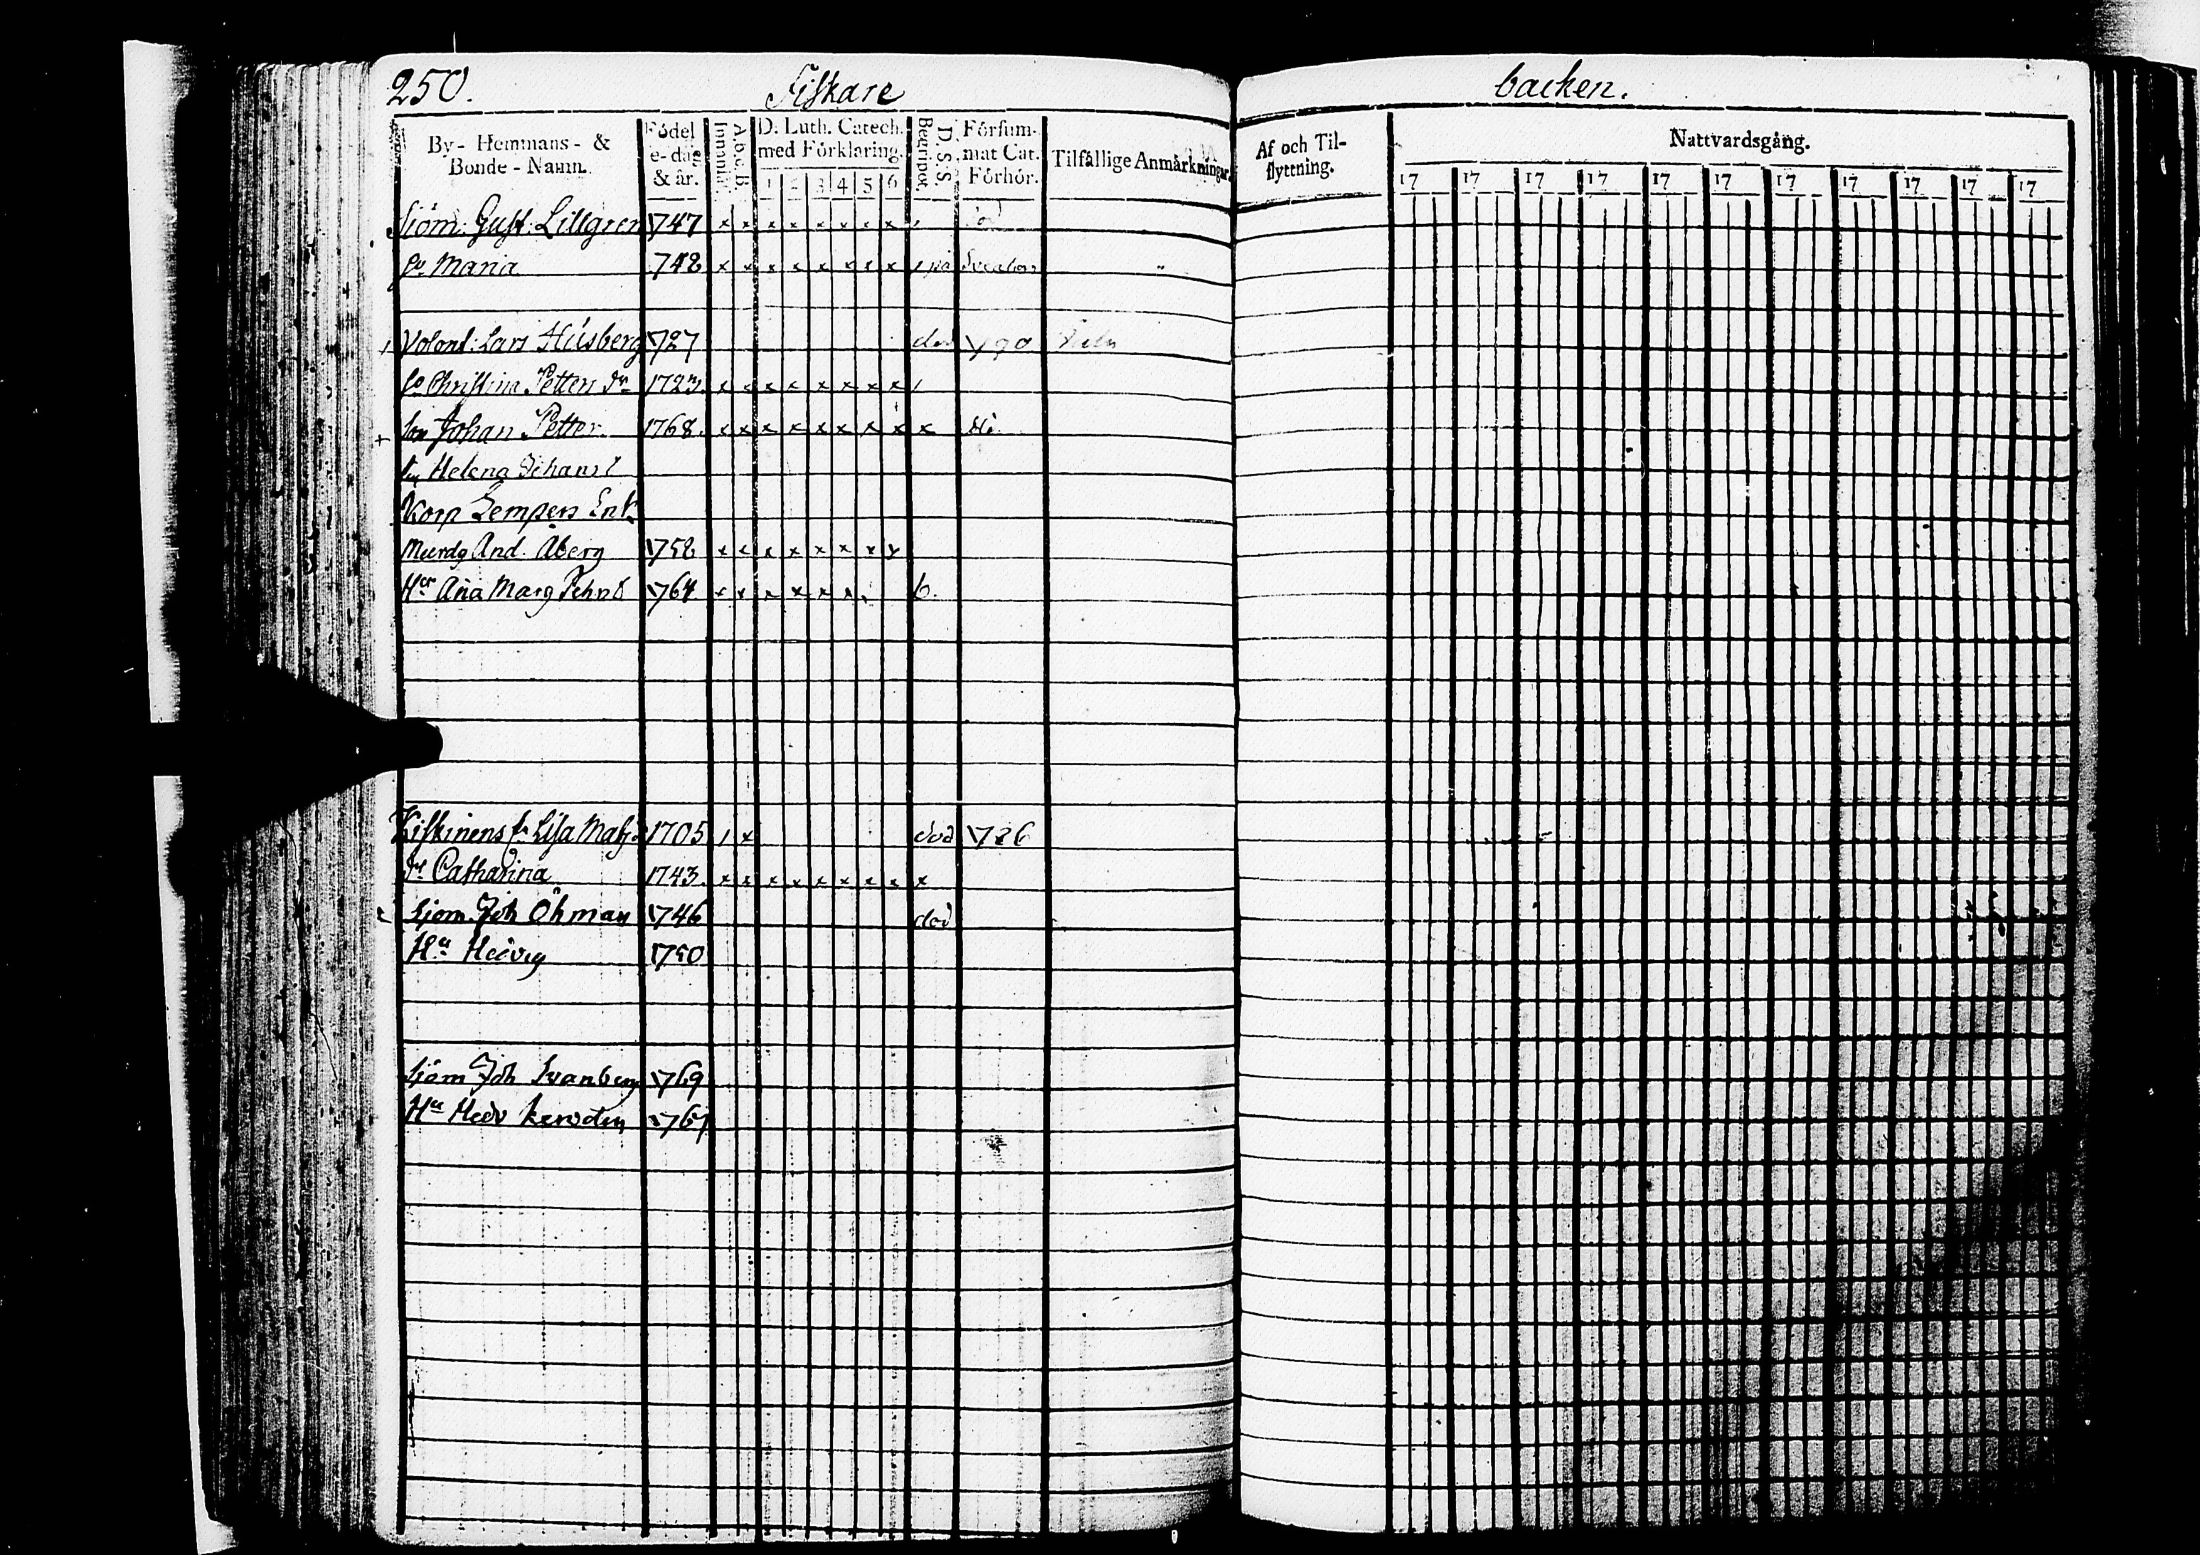 250. Fiskare backen.
By- Hemmans- & Bonde-Namn. Födelse-dag & år. Innanläs. A.b.c.B. D. Luth. Catech. med Förklaring. 1 2 3 4 5 6 D. S. S. Begripet. Försummat Cat. Förhör. Tilfällige Anmärkningar. Af och Tilflyttning. Nattvardsgång.
17 17 17 17 17 17 17 17 17 17 17
Siöm: Gust: Lillgren 1747 x x x x x x x x
hu Maria 748 x x x x x x x x på
Volont: Lars Husberg 1727 död 1790
Christina Petters dr 1723 x x x x x x x x
son Johan Petter 1768. x x x x x x x x x
Helena Johansd
Korp Lempers Enk.
And. Åberg 1758 x x x x x x x x
Hu Aña Marg 1764 x x x x x x 6
Lisa Mats 1705 x död 1786
dr Catharina 1743. x x x x x x x x x
Sjöm. Joh Öhman 1746 död
Hu Hedvig 1750
Sjöm Joh Svanberg 1769
Hu Hedv 1767